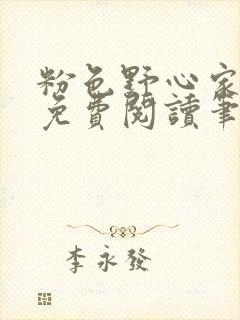 粉色野心家
免費閱讀筆
李永發